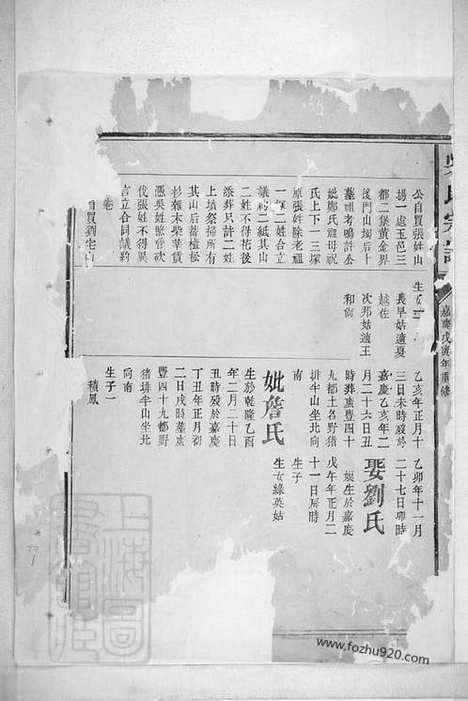 吳氏宗譜
嘉慶戊寅年重修
公自買張姓山
場一處玉邑三
都二堡黃金界
後門山塆后十
墓祖考鳴計公
妣鄭氏祖母祝
氏上下一三塚
原張姓除老祖
一塚二姓合立
議約二紙其山
二姓不得花後
添葬只許二姓
上墳祭掃所有
其山后蓄植松
杉雜木柴華賣
憑吳姓照管砍
伐張姓不得異
言立合同議約
卷
自買劉宅山
生女
長早姑適夏
越佐
次邦姑適王
和尙
乙亥年正月十
三日未時歿於
嘉慶乙亥年二
月二十六日丑
時葬慶豐四十
九都土名野猪
排牛山坐北向
南
妣詹氏
生於乾隆乙酉
年二月二十日
丑時歿於嘉慶
丁丑年正月初
二日戌時墓慶
豐四十九都野
猪排牛山坐北
向南
生子一
積鳳
乙卯年十一月
二十七日卯時
娶劉氏
媛生於嘉慶
戊午年正月二
十一日辰時
生子
生女綠英姑
上海圖
www.fozhu920.com